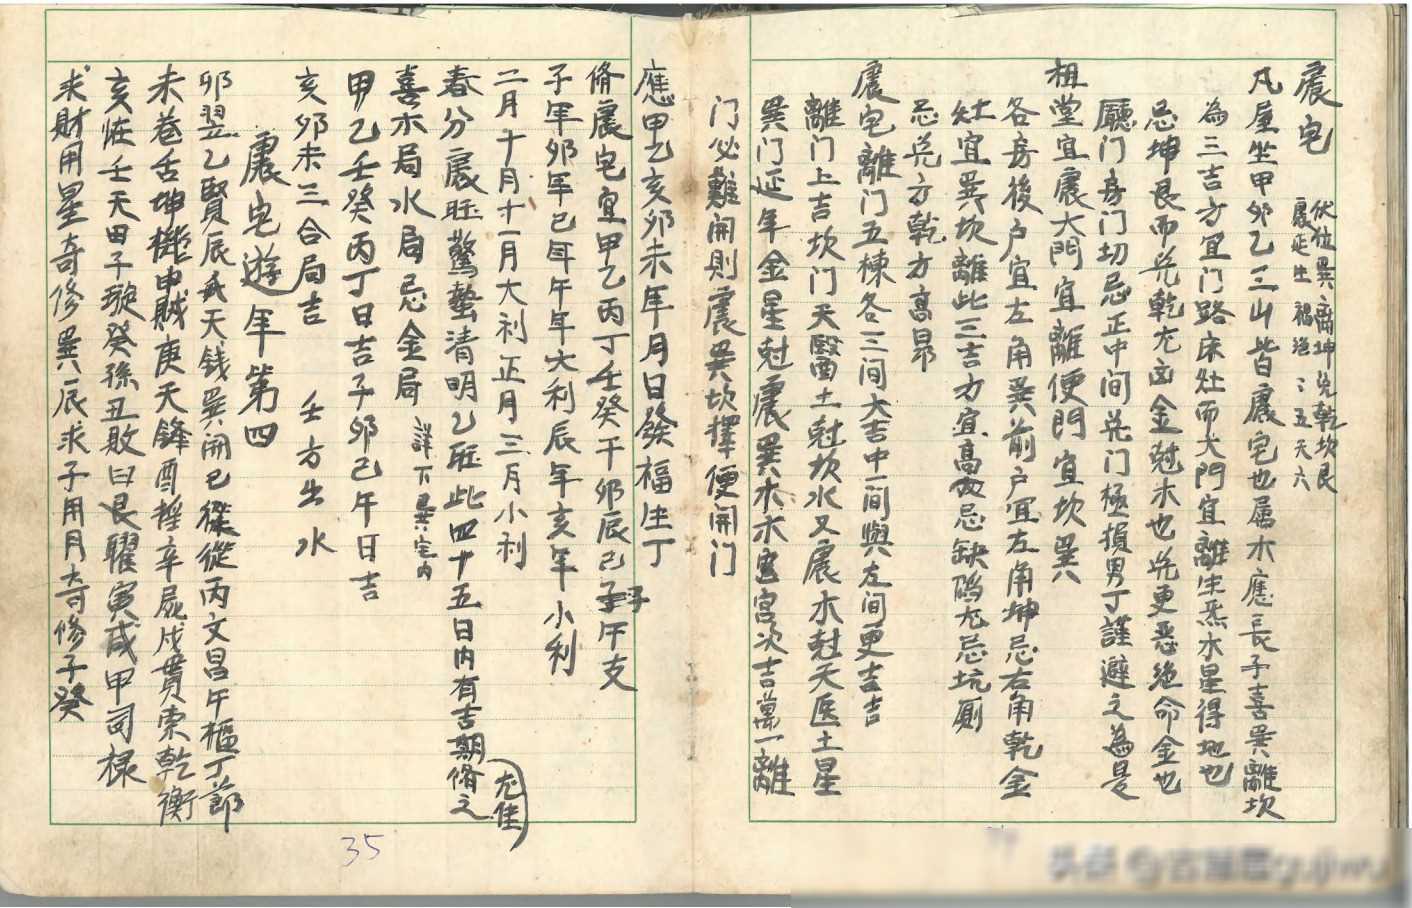 震宅
伏位巽离坤兑乾坎艮
震延生禍絕五天六
凡屋坐甲卯乙三山皆震宅也屬木應長子喜巽離坎
為三吉方宜门路床灶而大門宜離生炁水星得地也
忌坤艮而兑乾尤凶金尅木也兑更惡絶命金也
廳门房门切忌正中间兑门極損男丁謹避之為是
祖堂宜震大門宜離便門宜坎巽
各房後户宜左角巽前户宜左角坤忌右角乾金
灶宜巽坎離此三吉方宜高忌缺陷尤忌坑厠
忌兑方乾方高昂
震宅離门五棟各三间大吉中一间與左间更吉吉
離门上吉坎门天醫土尅坎水又震木尅天医土星
巽门延年金星尅震巽木木宫次吉萬一離
门必難開則震巽坎擇便開门
應甲乙亥卯未年月日發福生丁
脩震宅宜甲乙丙丁壬癸干卯辰己子午支
子年卯年巳年午年大利辰年亥年小利
二月十月十一月大利正月三月小利
春分震旺驚蟄清明乙旺此四十五日内有吉期脩之
尤佳
喜木局水局忌金局 詳下巽宅内
甲乙壬癸丙丁日吉子卯己午日吉
亥卯未三合局吉 壬方出水
震宅遊年第四
卯翌乙賢辰天天钱巽開巳從丙文昌午樞丁節
未卷舌坤機申賊庚天鋒酉摇辛屍戌貫索乾衡
亥旺壬天田子璇癸孫丑敗曰艮曜寅咸甲司禄
求財用星奇修巽辰求子用月奇修子癸
35